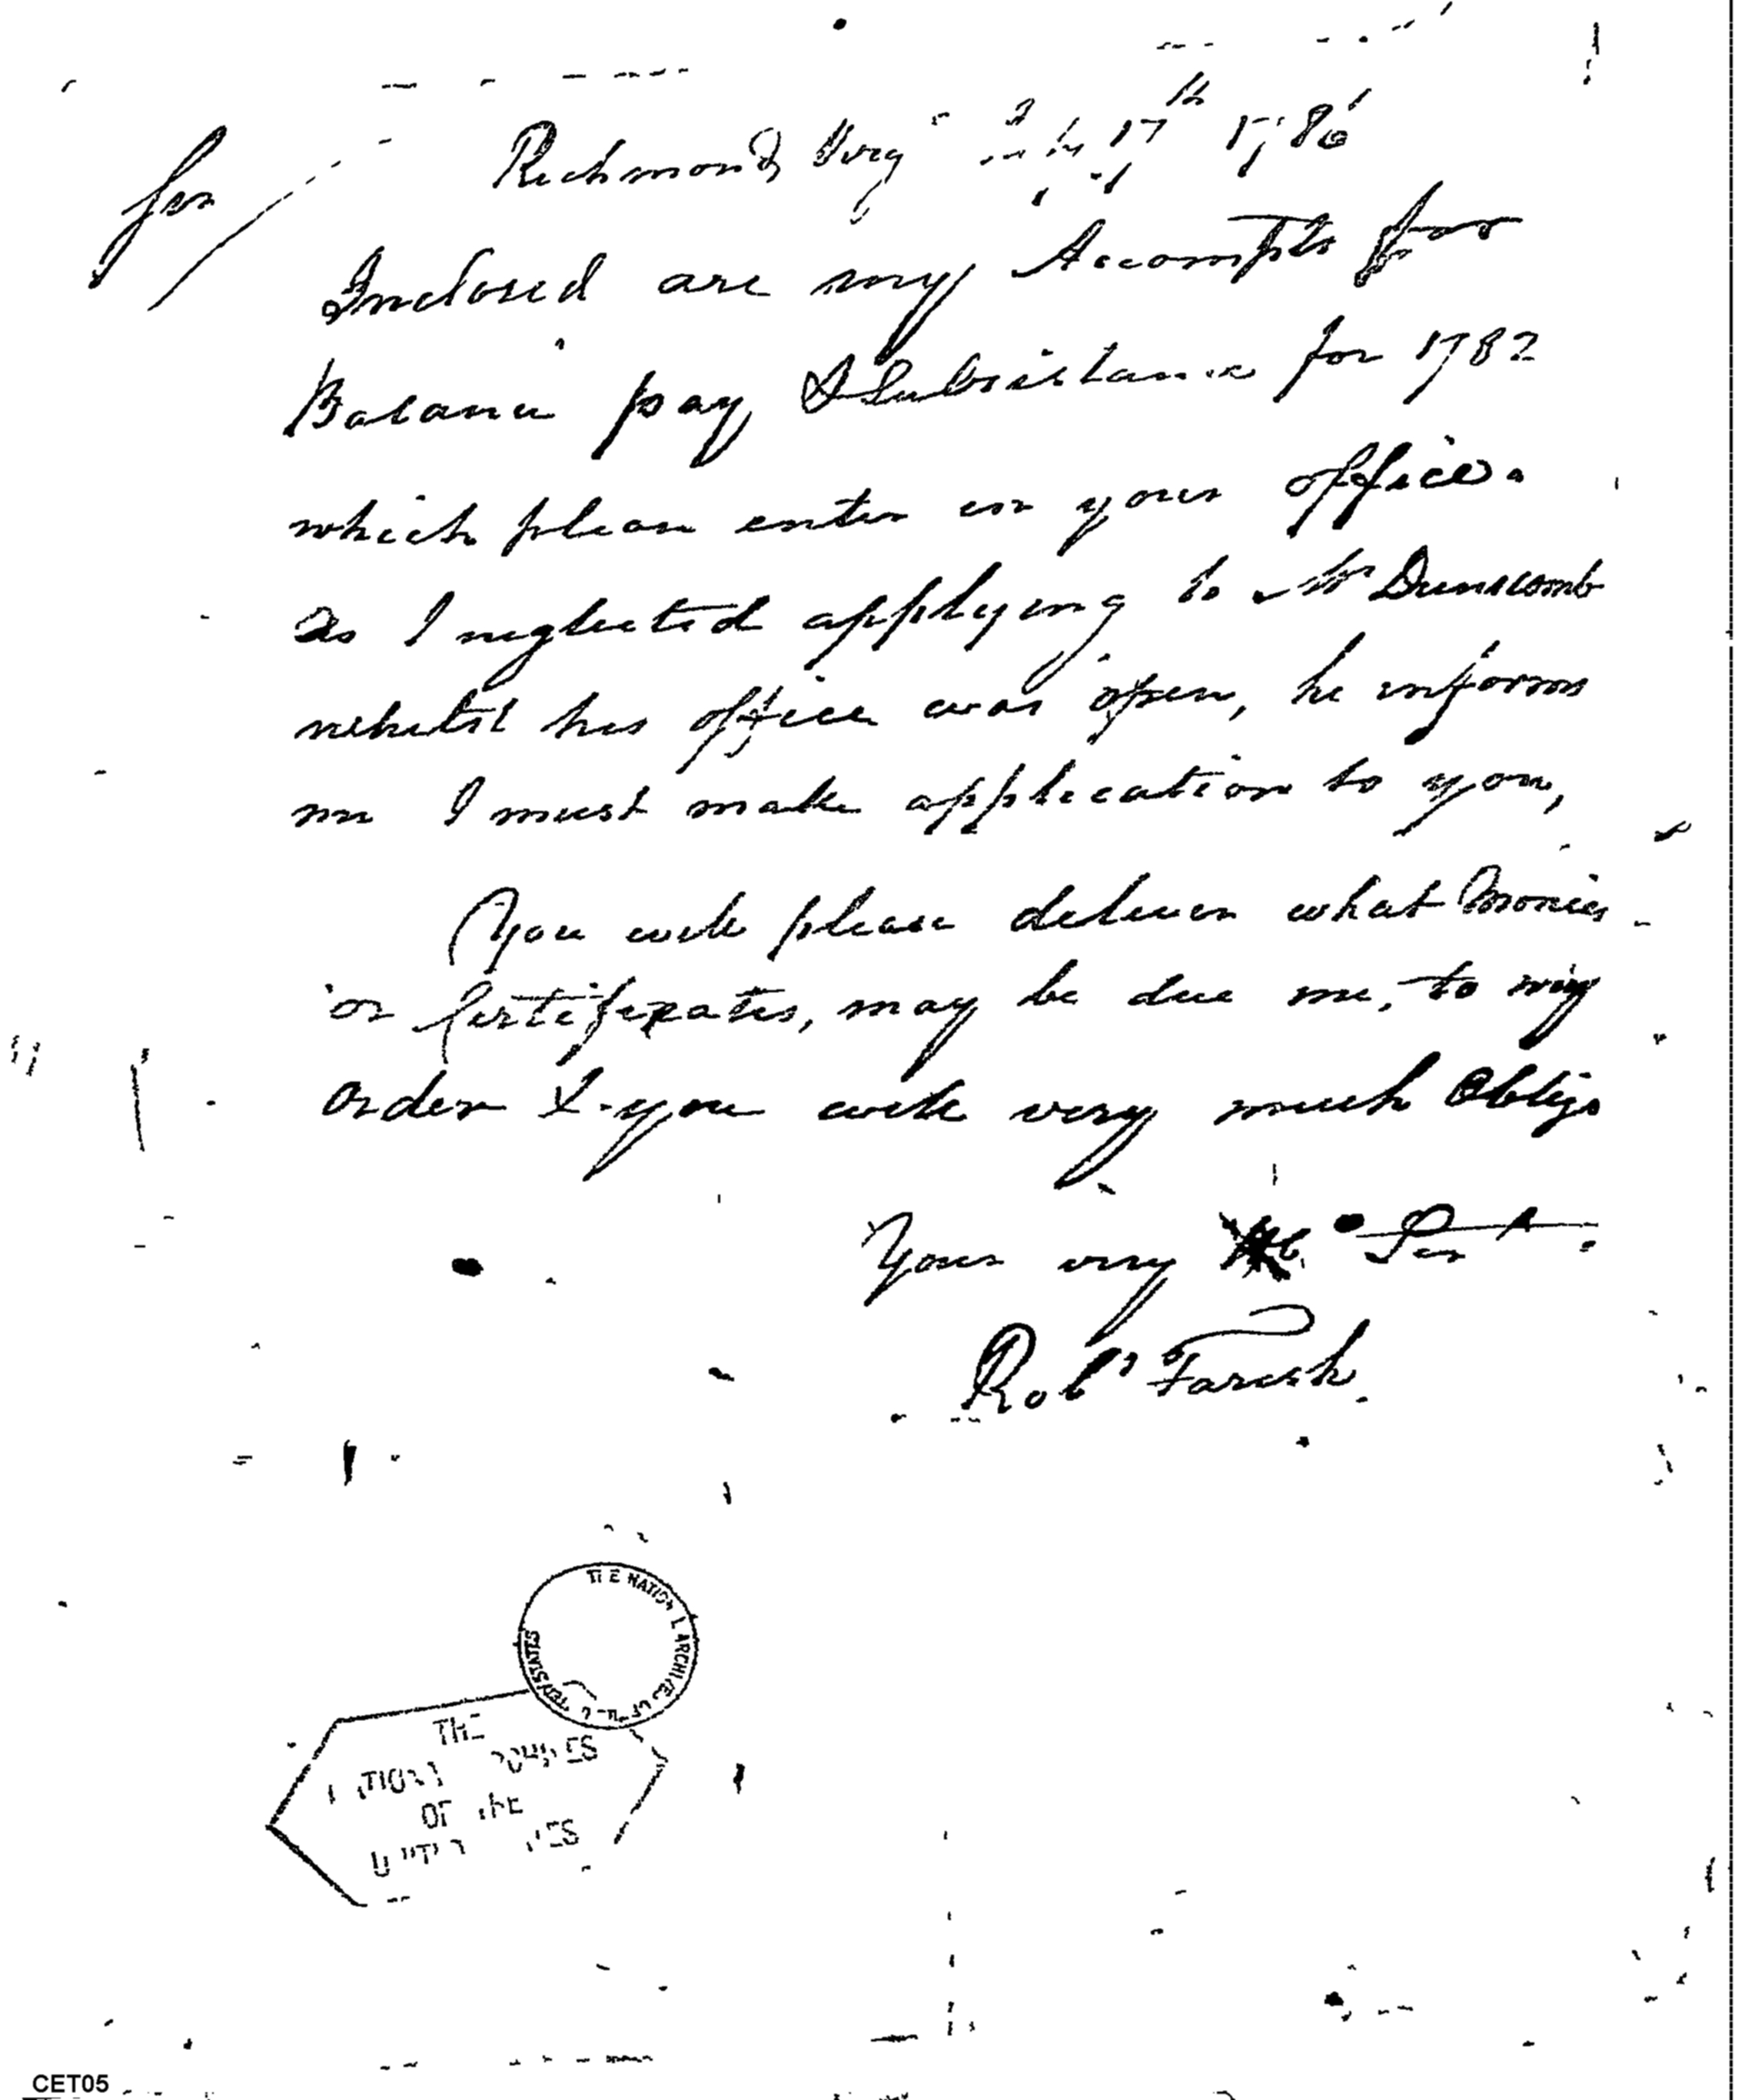 Sir
Richmond Virg 17th 1786
Inclosed are my Accompts for
Balance pay & Subsistance for 1782
which please enter in your office.
as I neglected applying to Mr Dunscomb
whilst his office was open, he informs
me I must make application to you,
You will please deliver what Monies
or Certificates, may be due me, to my
order & you will very much Oblige
Your very Ser
Robt Farish
THE NATIONAL ARCHIVES OF THE UNITED STATES
THE
NATIONAL ARCHIVES
OF THE
UNITED STATES
CET05